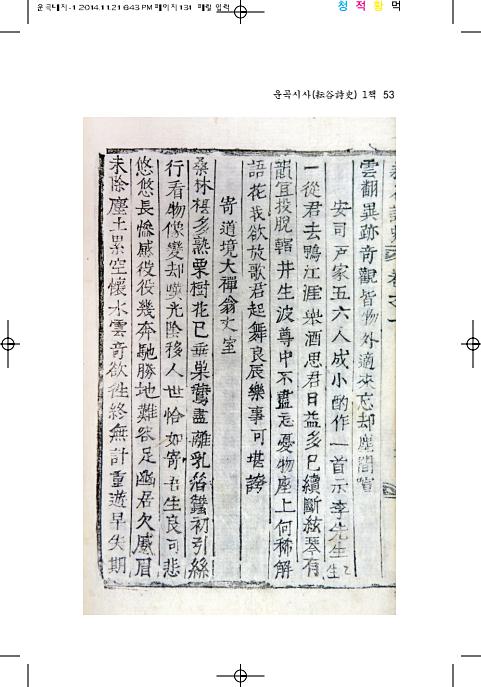 운곡대지-1 2014.11.21 6:43 PM 페이지131 매일 입력
청 적 황 먹
운곡시사(耘谷詩史) 1책 53
雲翻異跡奇觀皆物外適來忘却塵闤喧
安司戶家五六人成小酌作一首示李先生
一從君去鴨江涯樂酒思君日益多已續斷絃琴有
韻宜投脫轄井生波尊中不盡忘憂物座上何稀解
語花我欲放歌君起舞良辰樂事可堪誇
寄道境大禪翁丈室
桑林椹多熟栗樹花已垂巢鸎盡離乳箔蠶初引絲
行看物像變却嘆光陰移人世恰如寄吾生良可悲
悠悠長慘慼役役幾奔馳勝地難欲足幽居欠感眉
未除塵土累空懷水雲奇欲往終無計重遊早失期